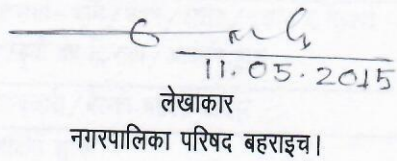 11.05.2015
लेखाकार
नगरपालिका परिषद बहराइच।